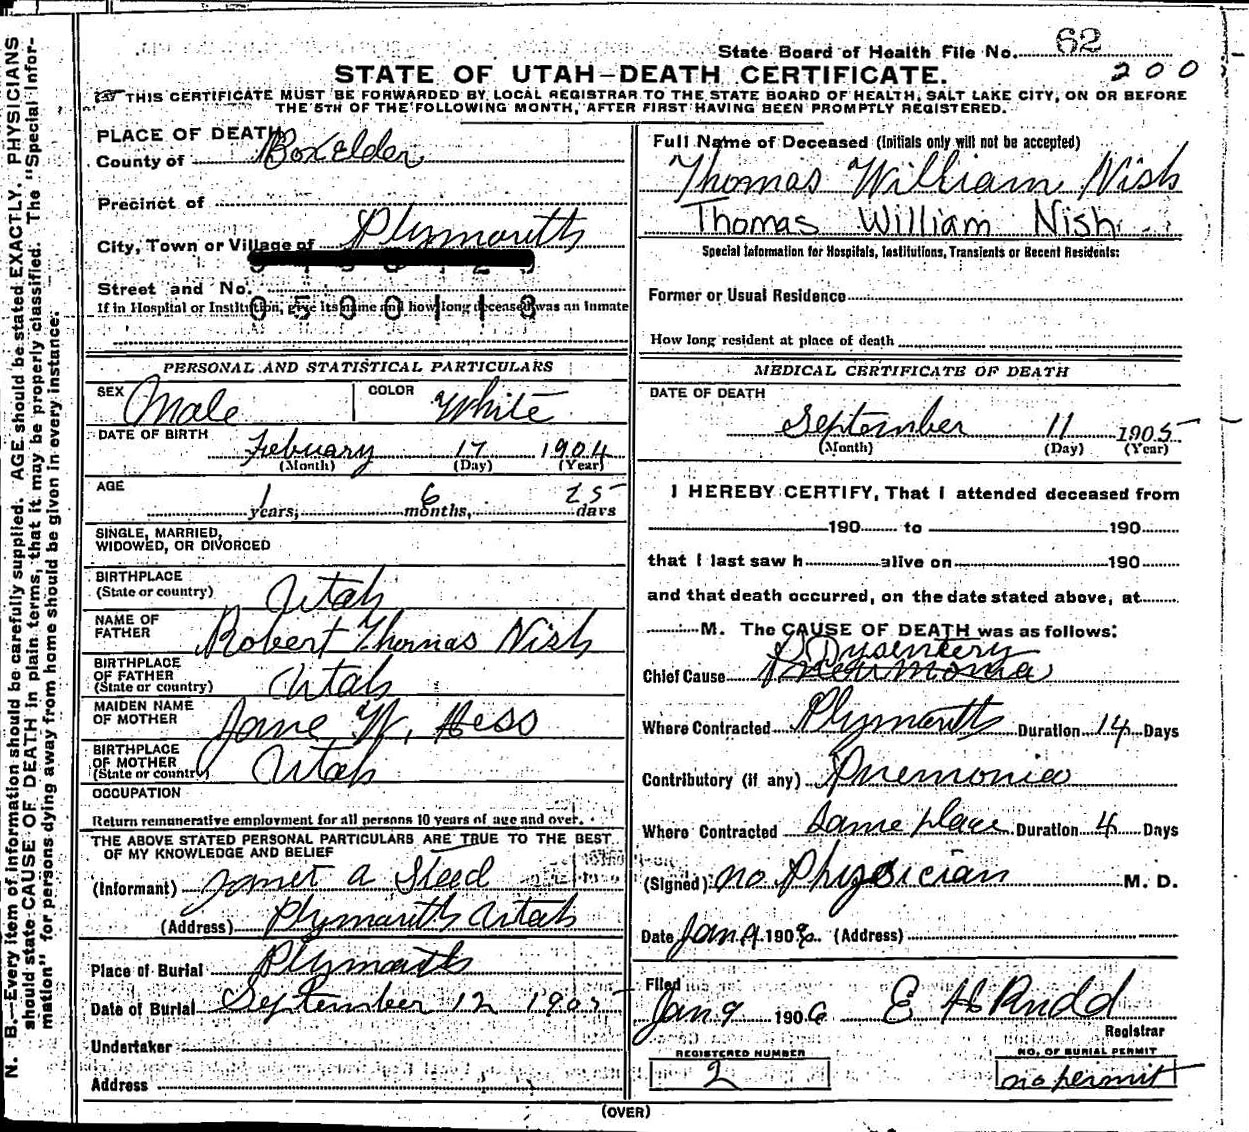 State Board of Health File No. 62
200
STATE OF UTAH—DEATH CERTIFICATE.
THIS CERTIFICATE MUST BE FORWARDED BY LOCAL REGISTRAR TO THE STATE BOARD OF HEALTH, SALT LAKE CITY, ON OR BEFORE
THE 5TH OF THE FOLLOWING MONTH, AFTER FIRST HAVING BEEN PROMPTLY REGISTERED.
N. B.—Every item of information should be carefully supplied. AGE should be stated EXACTLY. PHYSICIANS
should state CAUSE OF DEATH in plain terms, that it may be properly classified. The "Special Infor-
mation" for persons dying away from home should be given in every instance.
PLACE OF DEATH
County of Box Elder
Precinct of
City, Town or Village of Plymouth
Street and No.
0500113
If in Hospital or Institution, give its name and how long deceased was an inmate
PERSONAL AND STATISTICAL PARTICULARS
SEX Male COLOR White
DATE OF BIRTH February 17 1904
(Month) (Day) (Year)
AGE 1 years, 6 months, 25 days
SINGLE, MARRIED,
WIDOWED, OR DIVORCED
BIRTHPLACE
(State or country) Utah
NAME OF
FATHER Robert Thomas Nish
BIRTHPLACE
OF FATHER
(State or country) Utah
MAIDEN NAME
OF MOTHER Jane W. Hess
BIRTHPLACE
OF MOTHER
(State or country) Utah
OCCUPATION
Return remunerative employment for all persons 10 years of age and over.
THE ABOVE STATED PERSONAL PARTICULARS ARE TRUE TO THE BEST
OF MY KNOWLEDGE AND BELIEF
(Informant) Janet a Steed
(Address) Plymouth Utah
Place of Burial Plymouth
Date of Burial September 12 1905
Undertaker
Address
Full Name of Deceased (Initials only will not be accepted)
Thomas William Nish
Thomas William Nish
Special Information for Hospitals, Institutions, Transients or Recent Residents:
Former or Usual Residence
How long resident at place of death
MEDICAL CERTIFICATE OF DEATH
DATE OF DEATH
September 11 1905
(Month) (Day) (Year)
I HEREBY CERTIFY, That I attended deceased from
190 to 190
that I last saw h alive on 190
and that death occurred, on the date stated above, at
M. The CAUSE OF DEATH was as follows:
Dysentery
Chief Cause Pneumonia
Where Contracted Plymouth Duration 14 Days
Contributory (if any) Pnemonia
Where Contracted Same place Duration 4 Days
(Signed) no Physician M. D.
Date Jan 9 1906 (Address)
Filed
Jan 9 1906 E H Rudd
Registrar
REGISTERED NUMBER
2
NO. OF BURIAL PERMIT
no permit
(OVER)